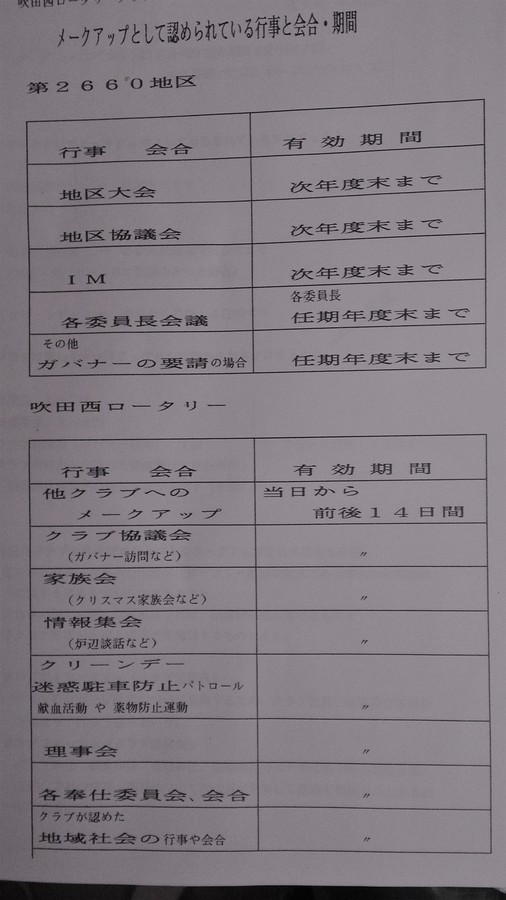 吹田西ロータリー
メークアップとして認められている行事と会合・期間
第２６６０地区
行事　会合　有効期間
地区大会　次年度末まで
地区協議会　次年度末まで
ＩＭ　次年度末まで
各委員長会議　各委員長
任期年度末まで
その他
ガバナーの要請の場合　任期年度末まで
吹田西ロータリー
行事　会合　有効期間
他クラブへの　当日から
メークアップ　前後１４日間
クラブ協議会
（ガバナー訪問など）　〃
家族会
（クリスマス家族会など）　〃
情報集会
（炉辺談話など）　〃
クリーンデー
迷惑駐車防止パトロール
献血活動 や 薬物防止運動　〃
理事会　〃
各奉仕委員会、会合　〃
クラブが認めた
地域社会の行事や会合　〃